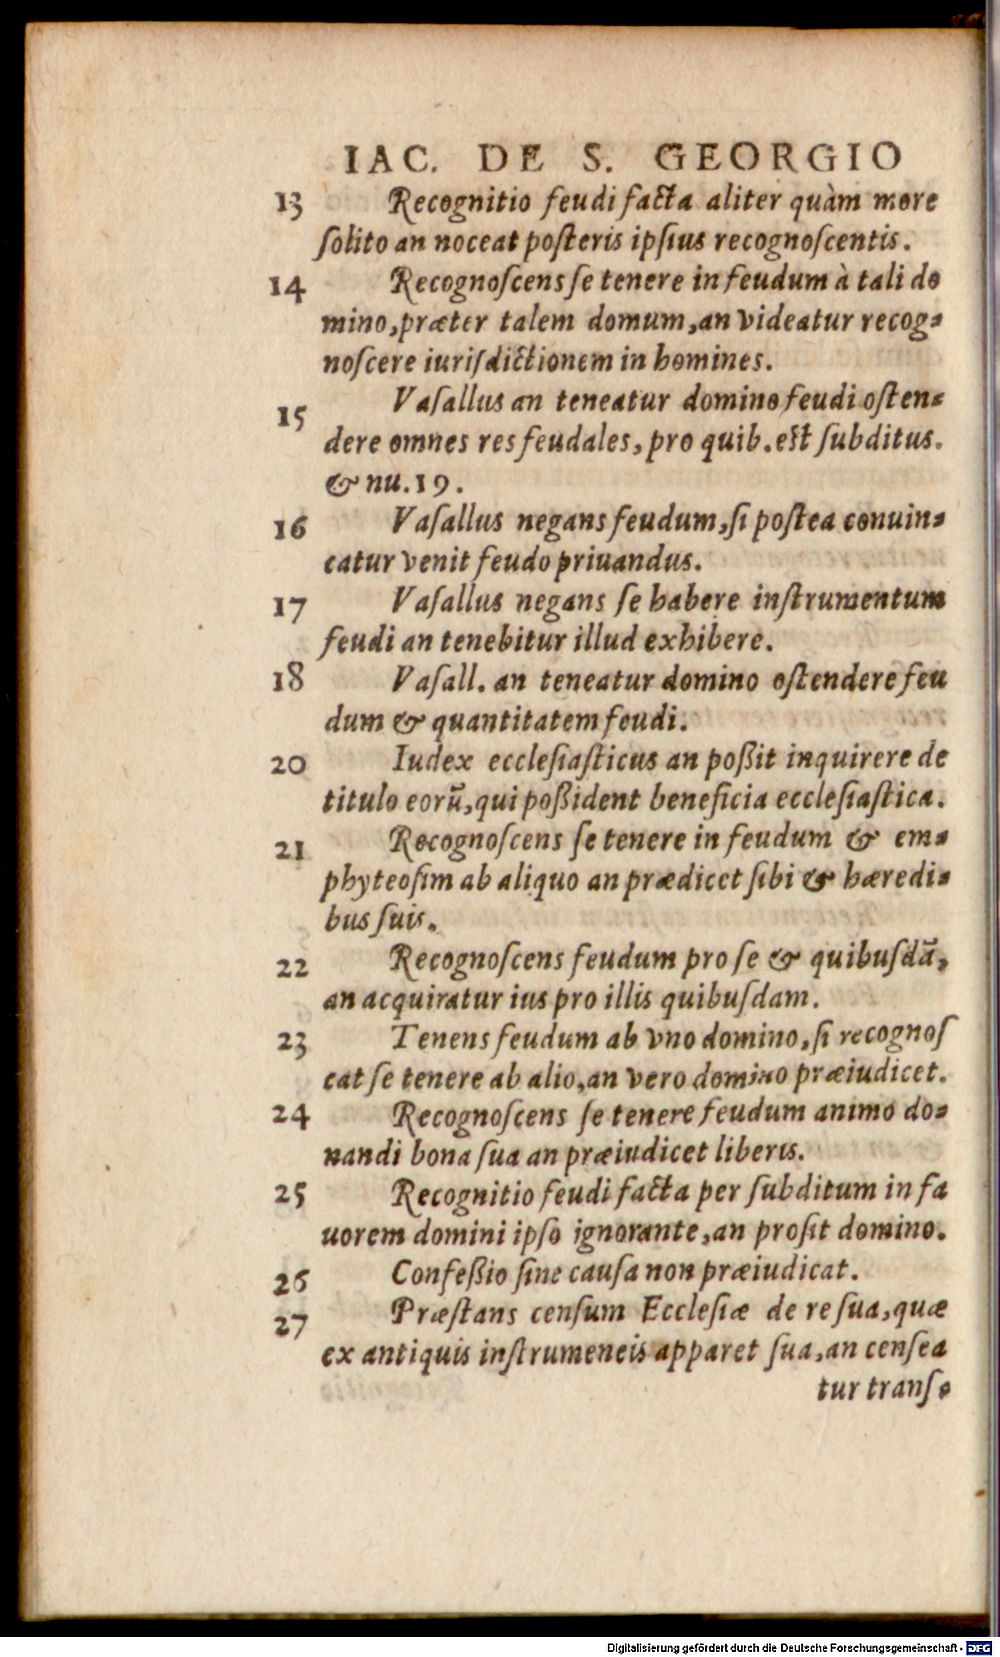 IAC. DE S. GEORGIO
13 Recognitio feudi facta aliter quàm more
ſolito an noceat poſteris ipſius recognoſcentis.
14 Recognoſcens ſe tenere in feudum à tali do
mino, præter talem domum, an videatur recog-
noſcere iuriſdictionem in homines.
15 Vaſallus an teneatur domino feudi oſten-
dere omnes res feudales, pro quib. eſt ſubditus.
& nu. 19.
16 Vaſallus negans feudum, ſi poſtea conuin-
catur venit feudo priuandus.
17 Vaſallus negans ſe habere inſtrumentum
feudi an tenebitur illud exhibere.
18 Vaſall. an teneatur domino oſtendere feu
dum & quantitatem feudi.
20 Iudex eccleſiaſticus an poßit inquirere de
titulo eorũ, qui poßident beneficia eccleſiaſtica.
21 Recognoſcens ſe tenere in feudum & em-
phyteoſim ab aliquo an prædicet ſibi & hæredi-
bus ſuis.
22 Recognoſcens feudum pro ſe & quibuſdã,
an acquiratur ius pro illis quibuſdam.
23 Tenens feudum ab vno domino, ſi recognoſ
cat ſe tenere ab alio, an vero domino præiudicet.
24 Recognoſcens ſe tenere feudum animo do-
nandi bona ſua an præiudicet liberis.
25 Recognitio feudi facta per ſubditum in fa
uorem domini ipſo ignorante, an proſit domino.
26 Confeßio ſine cauſa non præiudicat.
27 Præſtans cenſum Eccleſiæ de re ſua, quæ
ex antiquis inſtrumeneis apparet ſua, an cenſea
tur transo
Digitalisierung gefördert durch die Deutsche Forschungsgemeinschaft - DFG